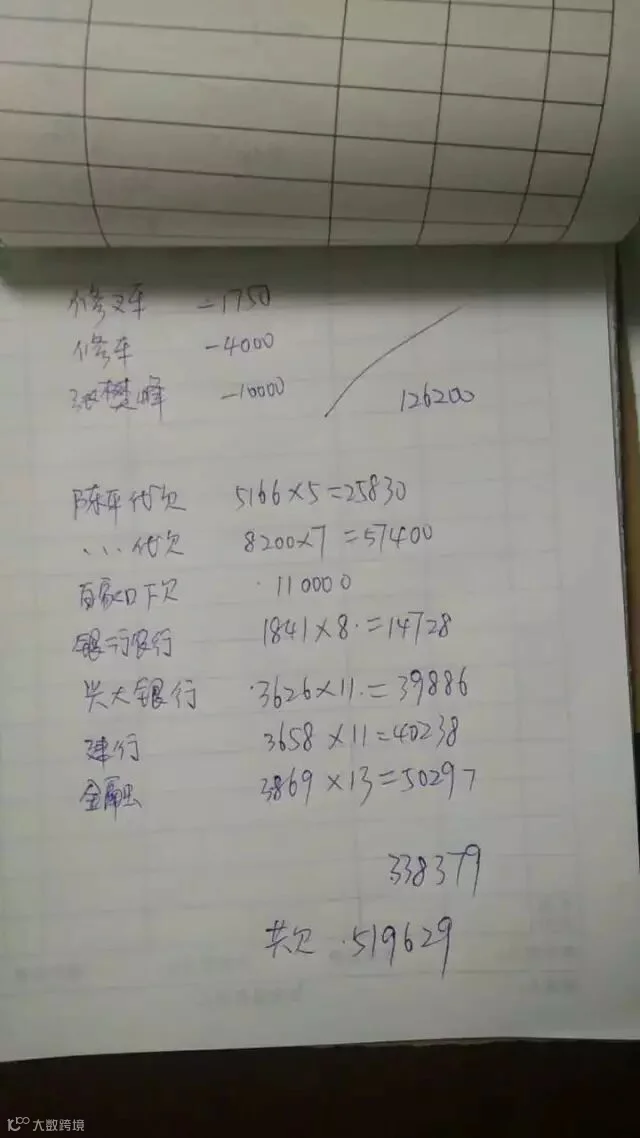 修叉车 -1750
修车 -4000
张樊峰 -10000 126200
陈平代欠 5166×5=25830
、、、代欠 8200×7=57400
下欠 110000
银行 1841×8=14728
兴大银行 3626×11=39886
建行 3658×11=40238
金融 3869×13=50297
338379
共欠 519629
大数跨境